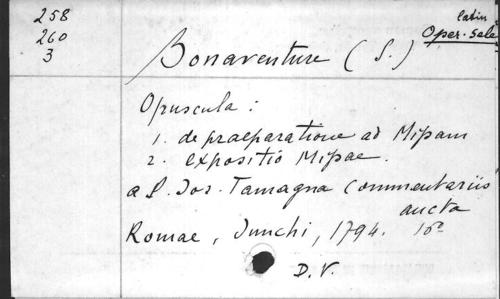 258
260
3
latin
Oper. sele
Bonaventure (S.)
Opuscula :
1. de praeparatione ad Missam
2. expositio Missae.
a L. Jos. Tamagna Commentariis
aucta
Romae, Junchi, 1794. 16º
D. V.